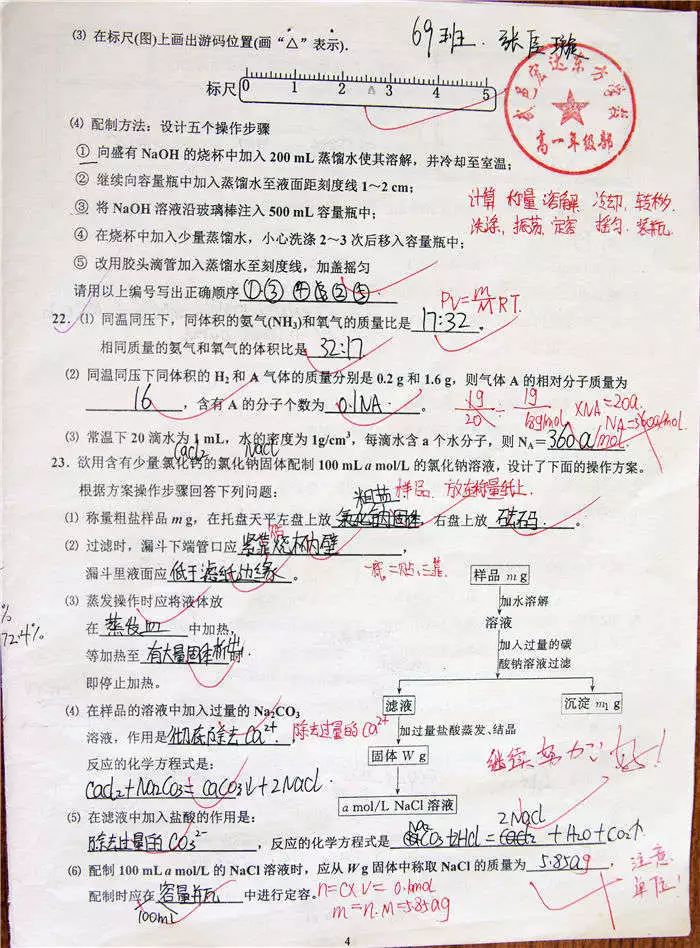 (3) 在标尺(图)上画出游码位置(画“△”表示).
69班. 张
标尺 0 1 2 3 4 5
宏达东方学校
高一年级部
(4) 配制方法：设计五个操作步骤
① 向盛有 NaOH 的烧杯中加入 200 mL 蒸馏水使其溶解，并冷却至室温；
② 继续向容量瓶中加入蒸馏水至液面距刻度线 1~2 cm；
③ 将 NaOH 溶液沿玻璃棒注入 500 mL 容量瓶中；
④ 在烧杯中加入少量蒸馏水，小心洗涤 2~3 次后移入容量瓶中；
⑤ 改用胶头滴管加入蒸馏水至刻度线，加盖摇匀
计算 称量 溶解 冷却, 转移,
洗涤, 振荡, 定容 摇匀. 装瓶
请用以上编号写出正确顺序 ①③④②⑤
PV=m/M RT.
22. (1) 同温同压下，同体积的氨气(NH₃)和氧气的质量比是 17:32 。
相同质量的氨气和氧气的体积比是 32:17
(2) 同温同压下同体积的 H₂ 和 A 气体的质量分别是 0.2 g 和 1.6 g，则气体 A 的相对分子质量为
16 ，含有 A 的分子个数为 0.1NA 。
1g/20 ÷ 1g/18g/mol ×NA=20a.
NA=360a/mol
(3) 常温下 20 滴水为 1 mL，水的密度为 1g/cm³，每滴水含 a 个水分子，则 NA= 360a/mol
CaCl2 NaCl
23. 欲用含有少量氯化钙的氯化钠固体配制 100 mL a mol/L 的氯化钠溶液，设计了下面的操作方案。
根据方案操作步骤回答下列问题：
粗盐 样品, 放在称量纸上
(1) 称量粗盐样品 m g，在托盘天平左盘上放 氯化钠固体 ，右盘上放 砝码 。
(2) 过滤时，漏斗下端管口应 紧靠烧杯内壁 ，
贴
漏斗里液面应 低于滤纸边缘 。
一低二贴三靠.
样品 m g
(3) 蒸发操作时应将液体放
在 蒸发皿 中加热，
等加热至 有大量固体析出 时
即停止加热。
%
72.4%
加水溶解
溶液
加入过量的碳
酸钠溶液过滤
滤液
沉淀 m₁ g
(4) 在样品的溶液中加入过量的 Na₂CO₃
溶液，作用是 彻底除去Ca²⁺ ，
除去过量的Ca²⁺
反应的化学方程式是：
CaCl2+Na2CO3=CaCO3↓+2NaCl.
加过量盐酸蒸发、结晶
固体 W g
a mol/L NaCl 溶液
继续努力! 好!
(5) 在滤液中加入盐酸的作用是：
2NaCl
除去过量的CO3²⁻ ，反应的化学方程式是 Na2CO3+2HCl=CaCl2+H2O+CO2↑
(6) 配制 100 mL a mol/L 的 NaCl 溶液时，应从 W g 固体中称取 NaCl 的质量为 5.85ag ，
注意
单位!
配制时应在 容量瓶 中进行定容。
100mL
n=C×V= 0.1mol
m=n.M=5.85ag
4